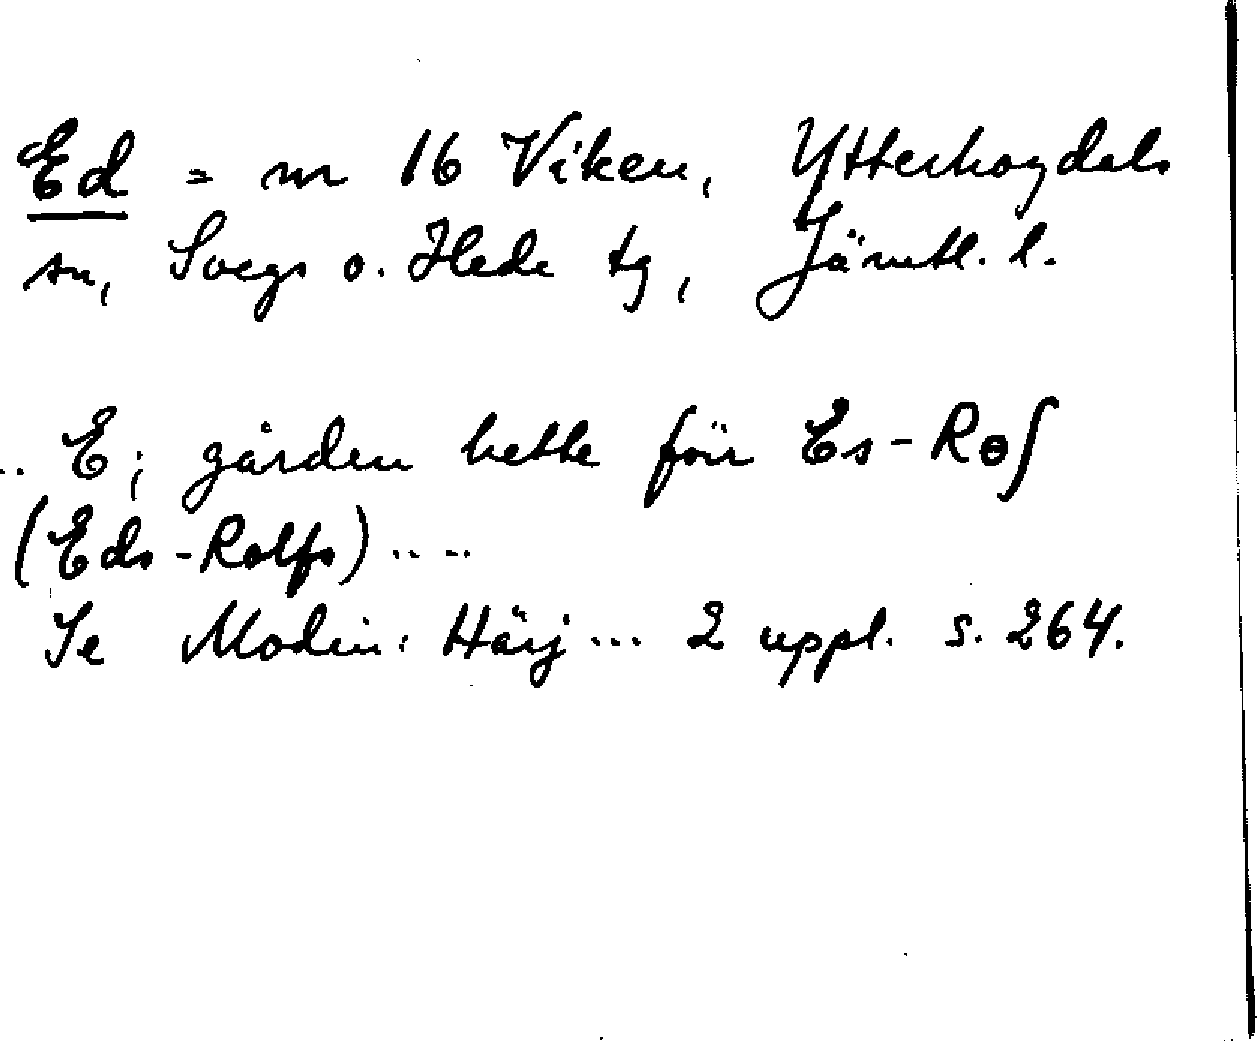 Ed = nr 16 Viken, Ytterhogdals
sn, Svegs o. Hede tg, Jämtl. l.
.. E; gården hette förr Es-Rɵʃ
(Eds-Rolfs) .. ..
Se Modin: Härj... 2 uppl. s. 264.